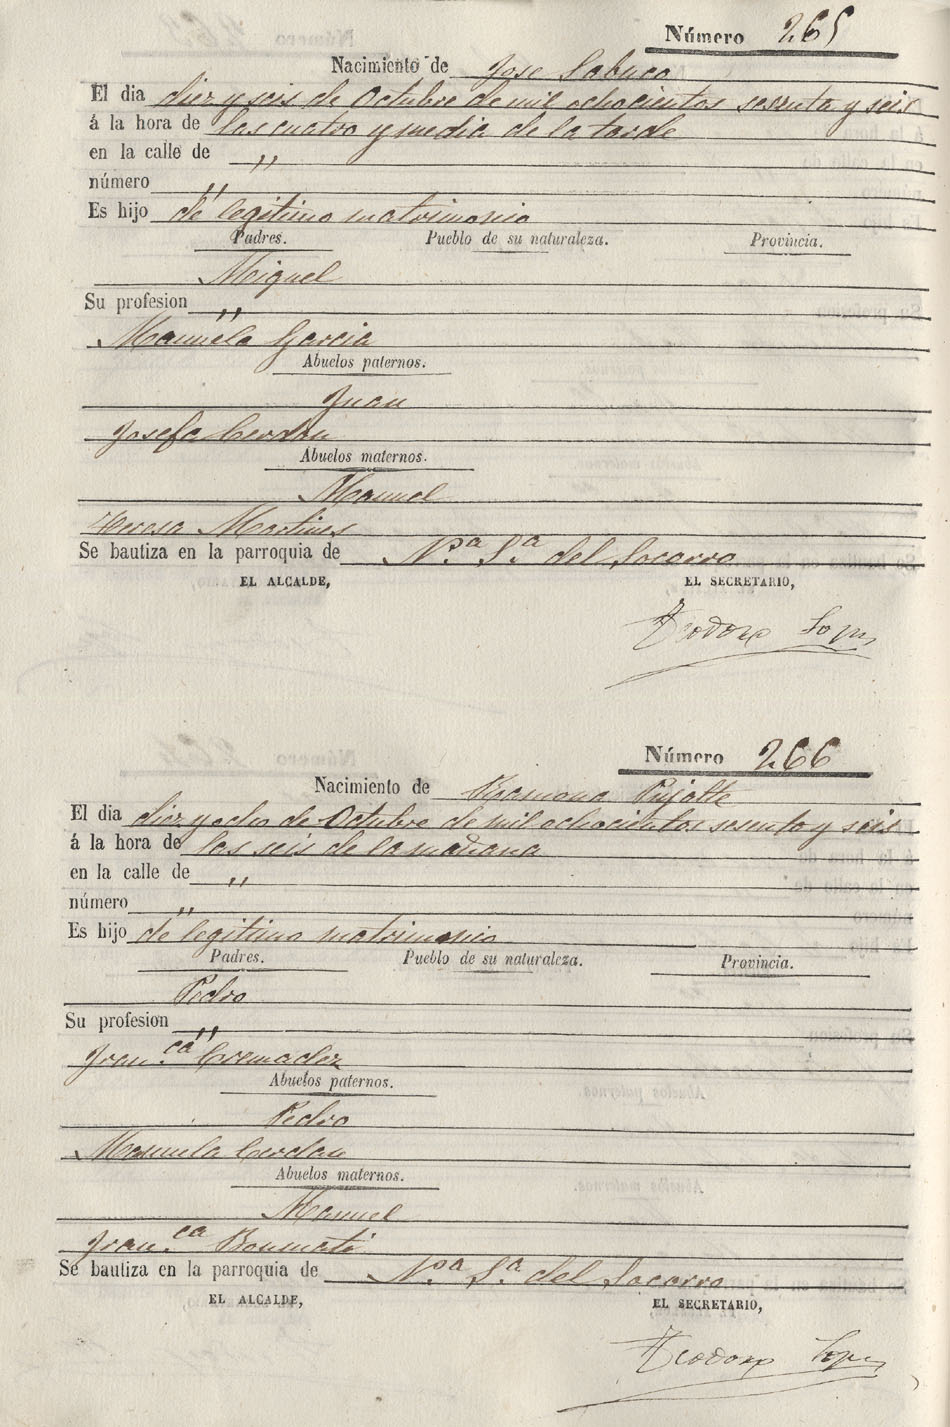 Número 265
Nacimiento de Jose Sabuco
El dia diez y seis de Octubre de mil ochocientos sesenta y seis
á la hora de las cuatro y media de la tarde
en la calle de "
número "
Es hijo de legitimo matrimonio
Padres. Pueblo de su naturaleza. Provincia.
Miguel
Su profesion "
Manuela Garcia
Abuelos paternos.
Juan
Josefa Cerdan
Abuelos maternos.
Manuel
Teresa Martines
Se bautiza en la parroquia de Nª Sª del Socorro
EL ALCALDE, EL SECRETARIO,
Teodoro Lopez
Número 266
Nacimiento de Ramona Pujalte
El dia diez y ocho de Octubre de mil ochocientos sesenta y seis
á la hora de las seis de la mañana
en la calle de "
número "
Es hijo de legitimo matrimonio
Padres. Pueblo de su naturaleza. Provincia.
Pedro
Su profesion "
Fran.ca Cremadez
Abuelos paternos.
Pedro
Manuela Cerdan
Abuelos maternos.
Manuel
Fran.ca Bonmati
Se bautiza en la parroquia de Nª Sª del Socorro
EL ALCALDE, EL SECRETARIO,
Teodoro Lopez